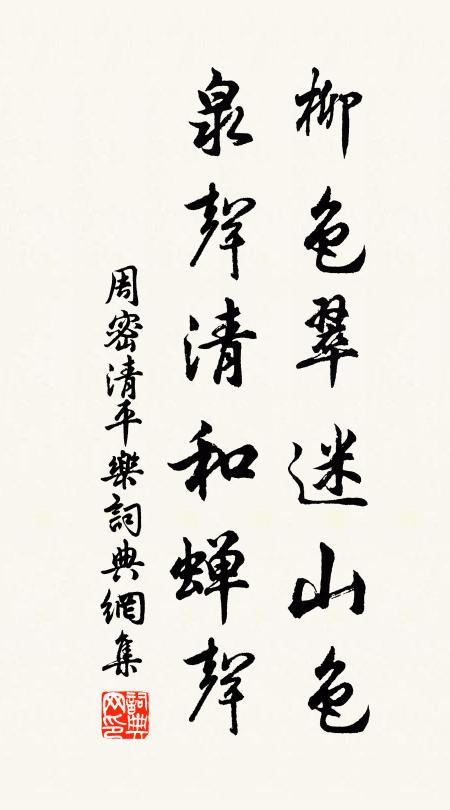 柳色翠迷山色
泉聲清和蟬聲
周密清平樂詞典網集
詞典網印